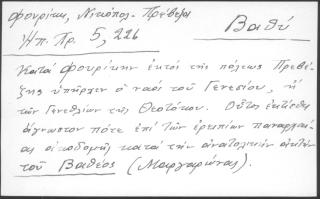 Φουρίκη, Νικόπολ. - Πρέβεζα
Βαθύ
Ἠπ. Χρ. 5, 226
Κατά Φουρίκην ἐκτός τῆς πόλεως Πρεβέ-
ζης ὑπῆρχεν ὁ ναός τοῦ Γενεσίου, ἤ
τῶν Γενεθλίων τῆς Θεοτόκου. Οὗτος ἐκτίσθη
ἄγνωστον πότε ἐπί τῶν ἐρειπίων παναρχαί-
ας οἰκοδομῆς κατά τήν ἀνατολικήν ἀκτήν
τοῦ Βαθέος (Μαργαρώνας).